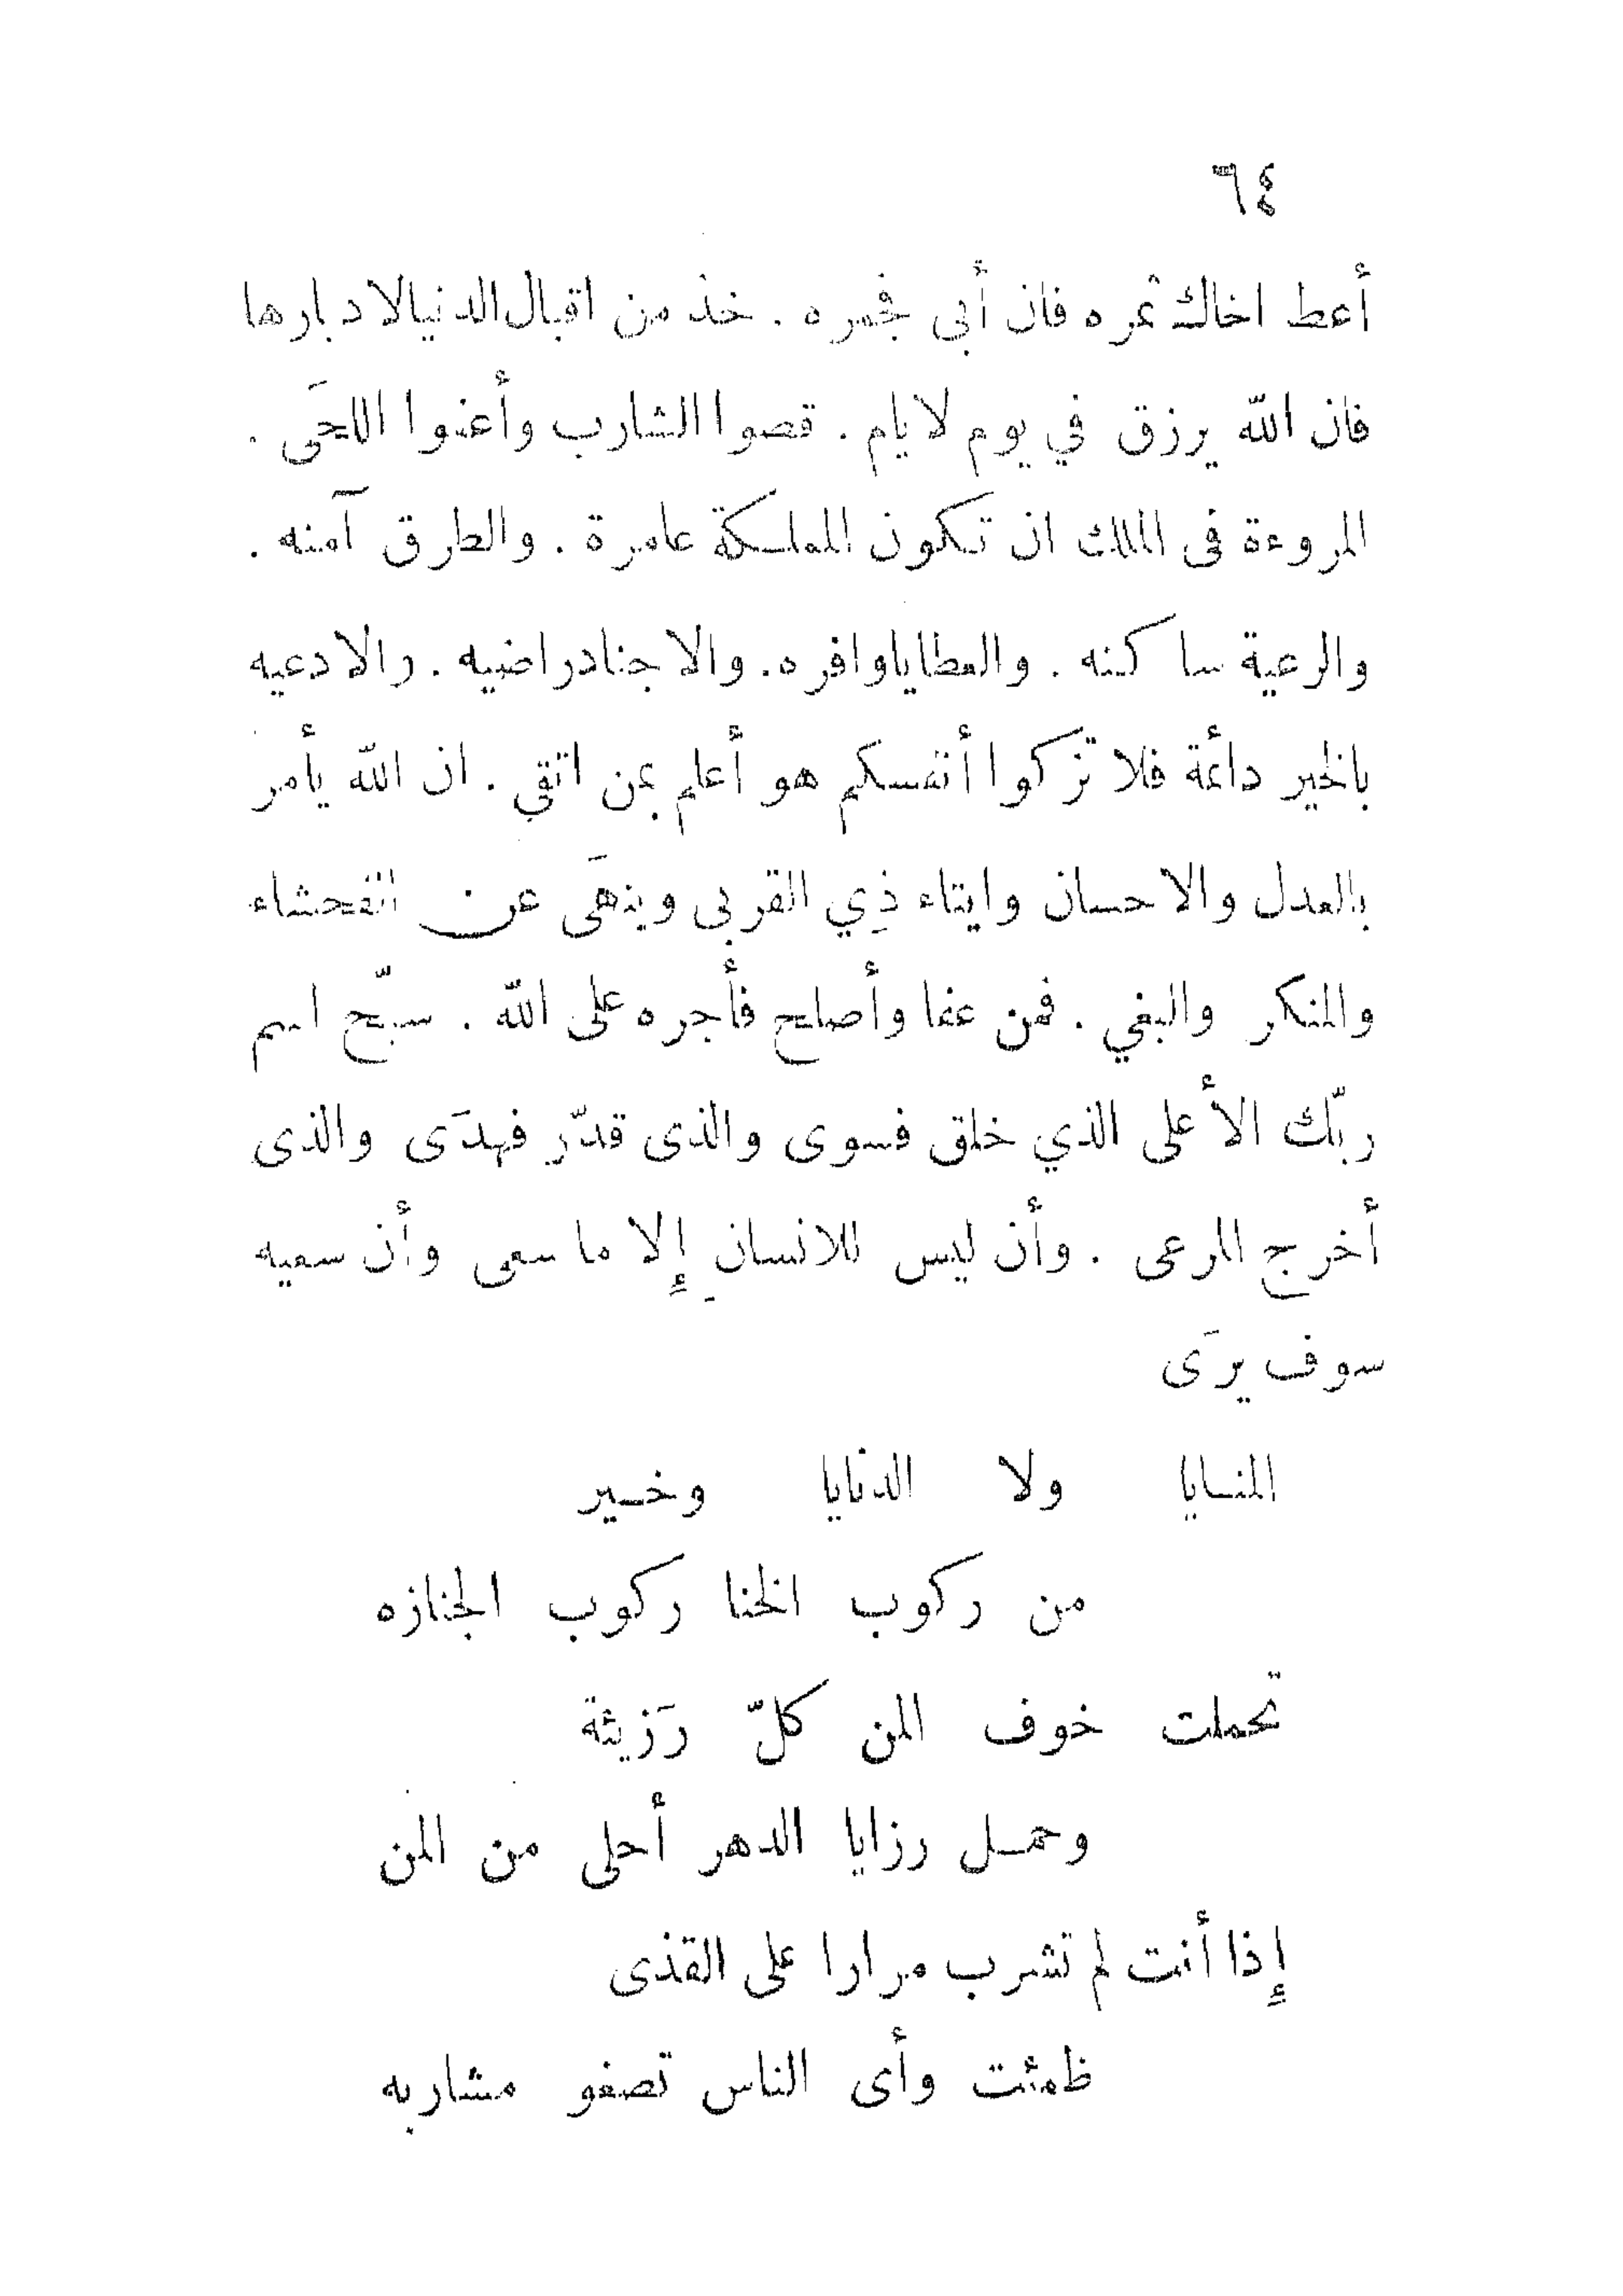 ٦٤
أعط اخاك تمره فان أبى فجمره . خذ من اقبال الدنيا لادبارها
فان الله يرزق في يوم لايام . قصوا الشارب وأعفوا اللحَى .
المروءة فى الملك ان تكون المملكة عامرة . والطرق آمنه .
والرعية ساكنه . والعطايا وافره . والاجناد راضيه . والادعيه
بالخير دائمة فلا تزكوا أنفسكم هو أعلم بمن اتقى . ان الله يأمر
بالعدل والاحسان وايتاء ذِي القربى وينهَى عن الفحشاء
والمنكر والبغي . فمن عفا وأصلح فأجره على الله . سبّح اسم
ربّك الأعلى الذي خلق فسوى والذى قدّر فهدَى والذى
أخرج المرعى . وأن ليس للانسانِ إلا ما سعى وأن سعيه
سوف يرَى
المنايا ولا الدنايا وخير
من ركوب الخنا ركوب الجنازه
تحملت خوف المن كلّ رَزيئة
وحمل رزايا الدهر أحلى من المن
إذا أنت لم تشرب مرارا على القذى
ظمئت وأى الناس تصفو مشاربه